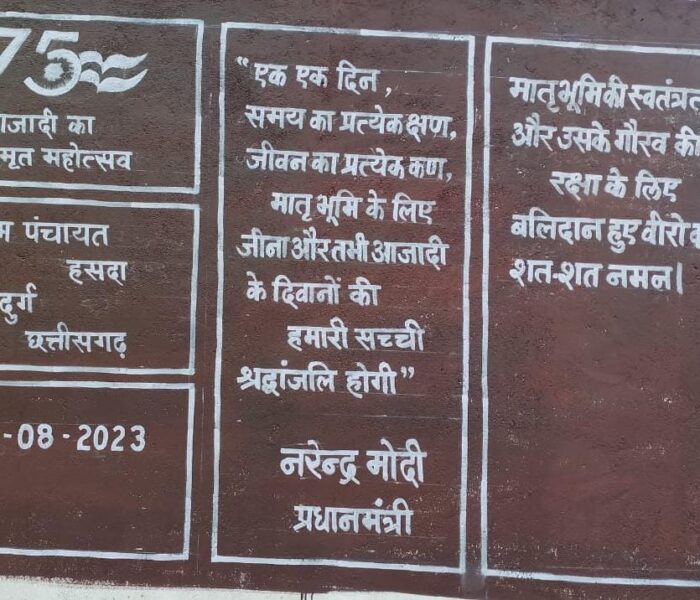 75
का
महोत्सव
पंचायत
हसदा
दुर्ग
छत्तीसगढ़
-08-2023
“एक एक दिन,
समय का प्रत्येक क्षण,
जीवन का प्रत्येक कण,
मातृ भूमि के लिए
जीना और तभी आजादी
के दिवानों की
हमारी सच्ची
श्रद्धांजलि होगी”
नरेन्द्र मोदी
प्रधानमंत्री
मातृ भूमि की
और उसके गौरव की
रक्षा के लिए
बलिदान हुए वीरो
शत-शत नमन।